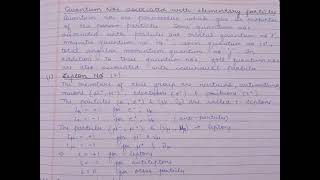 Quantum Nos associated with elementary particles
Quantum nos. are parameters which give us properties
of the various particles. Some quantum nos.
associated with particles are orbital quantum no 'l',
magnetic quantum no 'm', spin quantum no 's',
total angular momentum quantum no 'j'. In
addition to these quantum nos, quantum nos
are also associated with individual particles
(1) Lepton No (L)
The members of this group are neutrino, antineutrino
muons (μ⁺, μ⁻), electrons (e⁻) & positrons (e⁺).
The particles are called leptons
Le = +1 for e⁻,
Le = -1 for e⁺, (anti-particles)
The particles (μ⁻, μ⁺) & → leptons
Lμ = +1 for μ⁻,
Lμ = -1 for μ⁺ &
⇒ L = +1 for leptons
L = -1 for antileptons
L = 0 for other particles